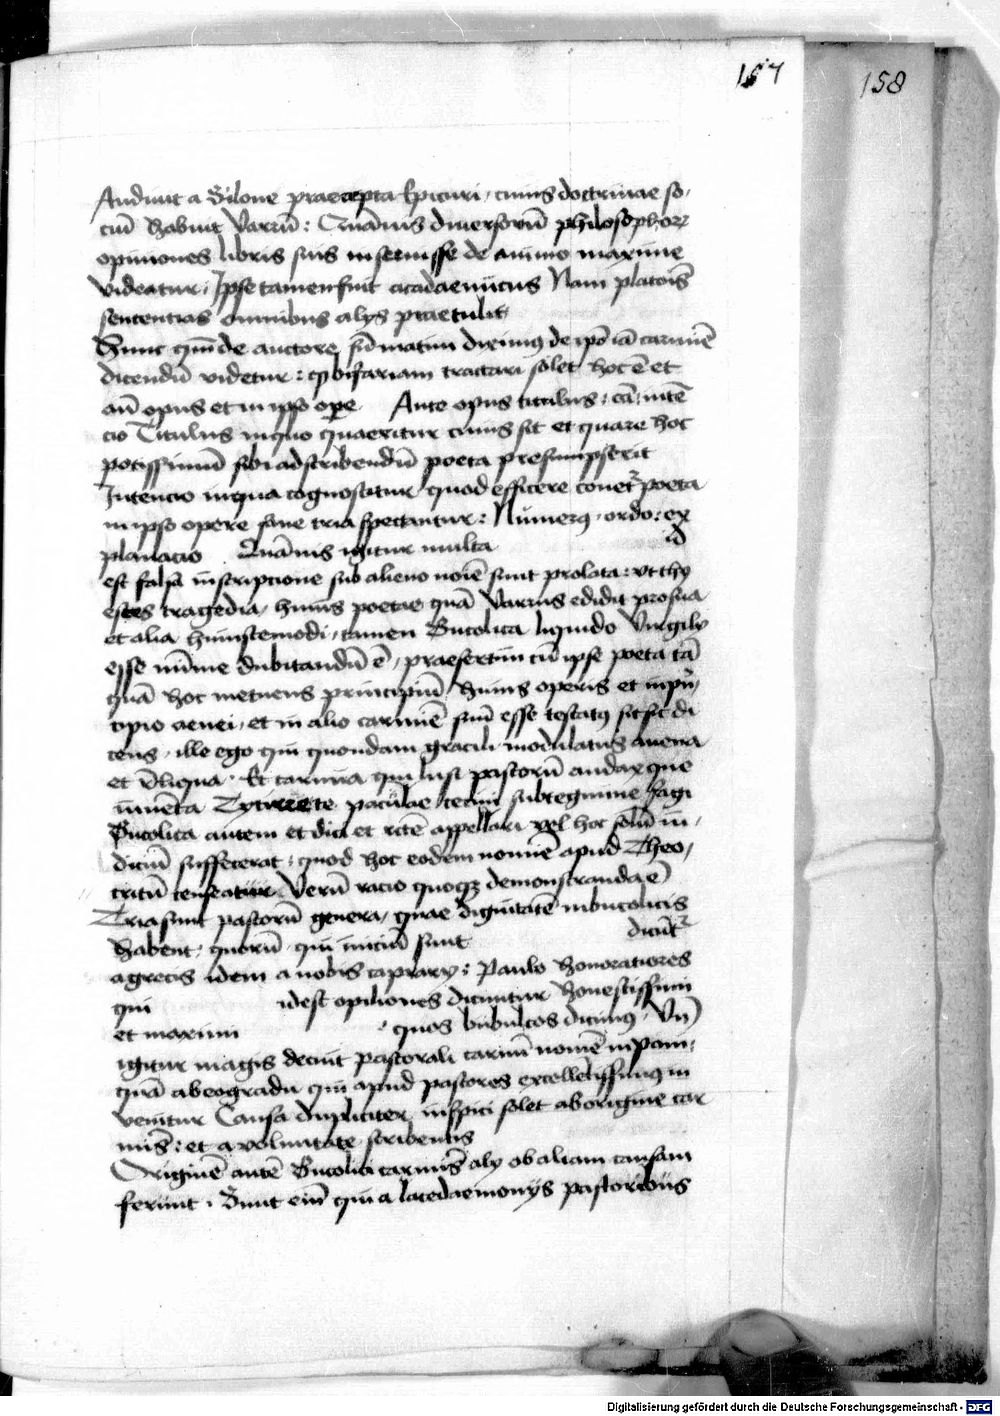 157
158
Audiuit a Silone praecepta Epicuri, cuius doctrinae so,
ciū habuit Varrū: Quāuis diuersorū philosophoꝝ
opiniones libris suis inseruisse de animo maxime
videatur, Ipse tamen fuit acadaemicus Nam platoīs
sentencias omnibus alijs praetulit
Hunc qm̄ de auctore sūmatim diximꝰ de ip̄o iā carmīe
dicendū videtur: qd bifariam tractari solet hoc ē et
an̄ opus et in ipso ope Ante opus titulus, cā, intē
cio Titulus in quo quaeritur cuius sit et quare hoc
potissimū sibi adscribendū poeta presumpserit
Intencio in qua cognoscitur quod efficere conetꝛ poeta
in ipso opere sane tria spectantur: Numerꝰ, ordo: ex
planacio Quāuis igitur multa id
est falsa inscriptione sub alieno noīe sunt prolata: vt thy
estes tragedia, huius poetae quā Varrus edidit pro sua
et alia huiuscemodi, tamen Bucolica liquido Virgilij
esse mīme dubitandū ē, praesertim cū ipse poeta tā
quā hoc metuens principiū huius operis et in pn̄,
cipio aenei, et in alio carmīe suū esse testatꝰ sit sic di
cens, ille ego qui quondam gracili modulatus auena
et rēliqua. Et carmina qui lusi pastorū audax que
iuuēta Tytire te patulae cecini sub tegmine fagi
Bucolica autem et dici et rc̄te appellari vel hoc solū in,
diciū suffecerat, quod hoc eodem nomīe apud Theo,
critū censeatur Verū racio quoqꝫ demonstranda ē
Tria sunt pastorū genera, quae dignitatē in bucolicis
habent, quorū qui inimi sunt dicūtꝛ
a grecis idem a nobis caprarij: Paulo honoratiores
qui idest opiliones dicuntur honestissimi
et maximi , quos bubulcos dicimꝰ, Vn̄
igitur magis decuit pastorali carmī nomē inponi,
quā ab eo gradu qui apud pastores excellētissimꝰ in
venitur Causa dupliciter inspici solet ab origine car
mīs: et a voluntate scribentis
Originē autē Bucolici carmīs alij ob aliam causam
ferunt, Sunt enī qui a lacedaemonijs pastoribus
Digitalisierung gefördert durch die Deutsche Forschungsgemeinschaft - DFG